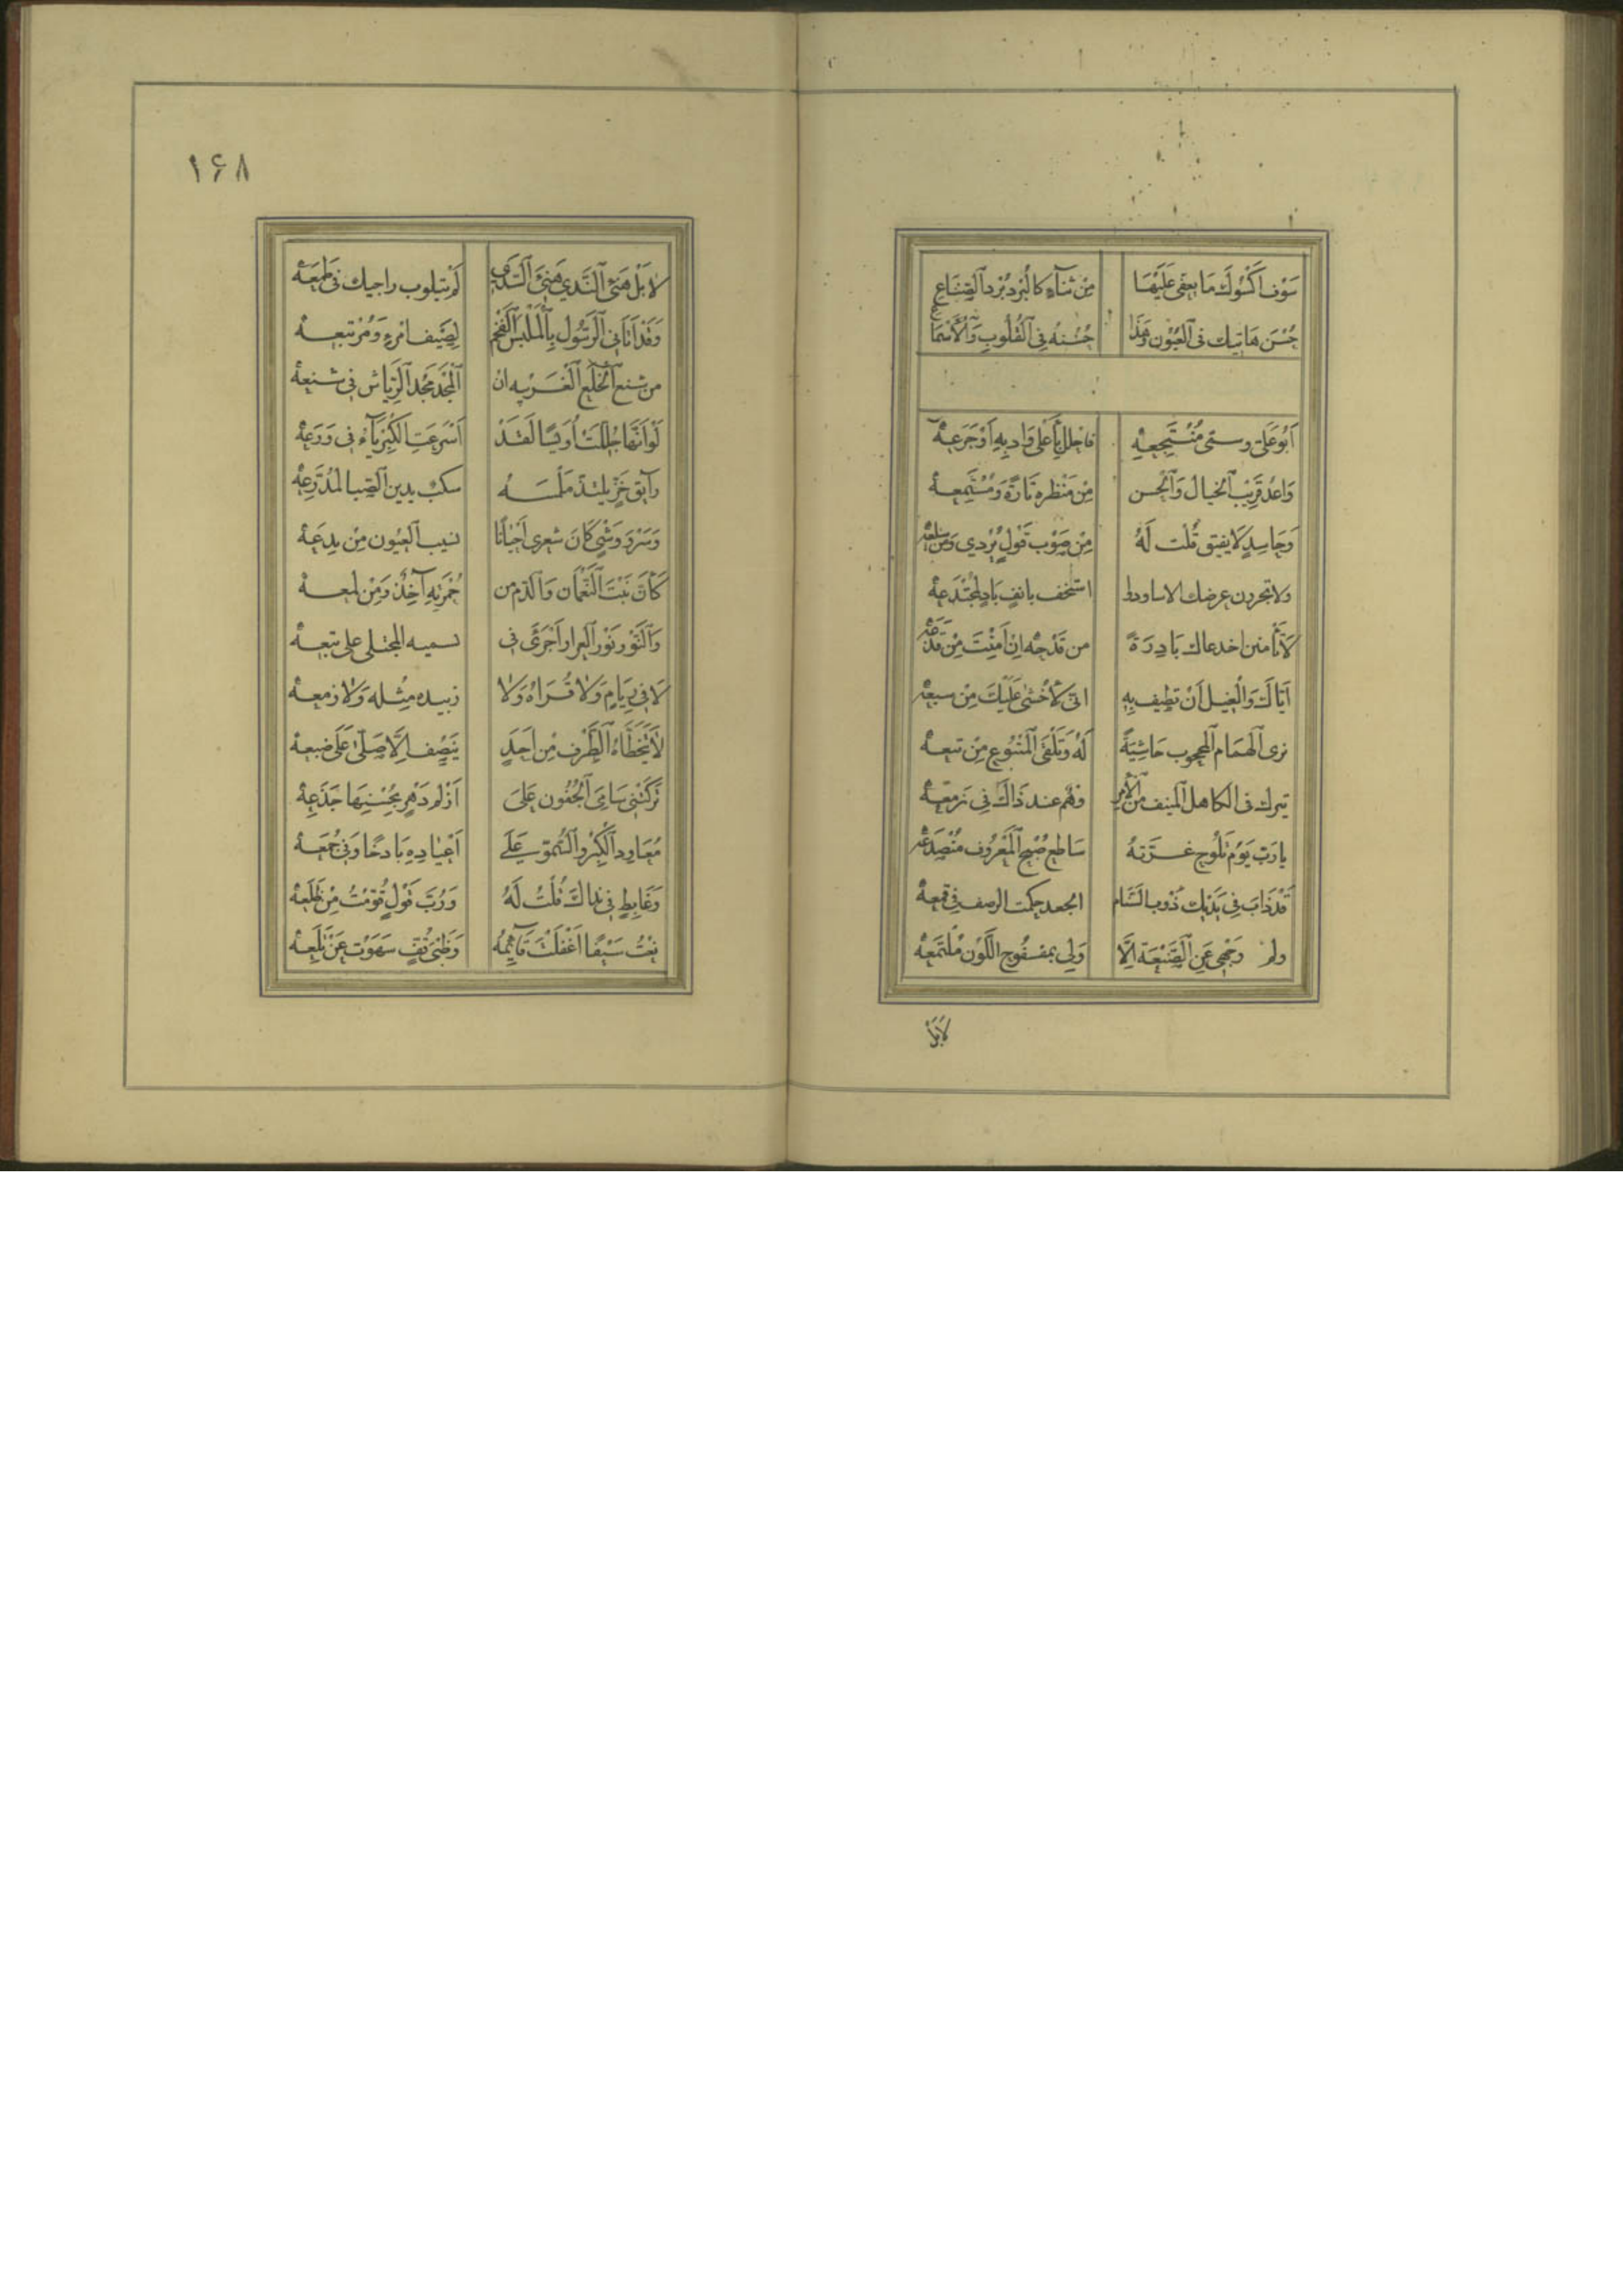 سَوْفَ اَكْسُوكَ مَا يعفى عَلَيْهَا مِنْ ثناءٍ كالْبُرد بُرْد الصَّنَاعِ
حُسْنَ هَاتيك فى العُيُون وَهَذَا حُسْنُهُ فِى القُلُوبِ وَالْأَسْمَاعِ
اَبُو عَلىّ وسمى مُنْتَجِعِهْ فاحلل بِأَعْلَى وَادِيهِ اَوْ جَرَعِهْ
وَاعْدُ قَرِيبَ الخيال وَالحسن مِنْ مَنْظره تَارَةً وَمُسْتَمِعهْ
وَحَاسِدٍ لَا يفيق قُلت لَهُ مِنْ صَوْبِ قَولٍ يُرْدي وَمن سلعهْ
ولا تجررن عرضك الاساود استخف بانفٍ بَادٍ لمُجْتَدَعِهْ
لَا تَأْمنن اخدعاك بَادِرَةً من قَدْحِه اِنْ اَمِنْتَ مِنْ قَذَعِهْ
اَيَّاكَ وَالْغِيل اَنْ تطِيف بِهِ انى لَأَخْشى عَلَيْكَ مِنْ سبعهْ
ترى الهُمَام المحجوب حَاشِيَةً لَهُ وَتَلْقَى المَتْبُوع مِنْ تبعهْ
تبرك فى الكاهل المنيف من الأمر وهُم عند ذَاكَ فِى زَمعهْ
يا رُبّ يَوْم تَلُوح غُرَّتهُ سَاطِع صُبْح المَعْرُوف مُنْصَدِعهْ
قَدْ ذَابَ فِى يَدَيْك ذَوب السَّنام الجعد حكمت الرضف فِى قمعهْ
ولم وَجْهِى عَنِ الصَّنِيعَة اِلَّا وَلِى بمسفُوح اللَّوْن مُلْتَمعهْ
لَا بَلْ
١۶٨
لَا بَلْ هَنِىّ النَّدي هَنِىّ السَّدَى لَمْ يتلوب راجيك فى طَمَعهْ
وَقَدْ اَتَانِى الرَّسُول بِالْمَلْبَسِ الفَخْم لِصَيْف امْرءٍ وَمُرْتبعِهْ
من شنع الخلع الغَرِيبه ان المَجْد مَجْد الرِّيَاش فى شنعهْ
لَوْ اَنَّهَا جُلِّلَتْ اُوَيْسًا لَقَدْ اَسْرَعَتِ الْكِبْرِيَاءُ فى وَرَعِهْ
رآئق خَزٍّ يلتذّ مَلْمَسَهُ سكب يدين الصِّبا لمُدَّرِعِهْ
وَسَرْو وَشْىٍ كَانَ شعرى اَحْيَانًا نسيب العُيُون مِنْ بِدَعِهْ
كَأَنَّ نَبْتَ النُّعْمَان وَالدّم من حُمْرَتِهِ آخِذٌ وَمِنْ لمعهْ
وَالنَّوْر نَوْر العرار اَجْرَىَ فى تسميه المجتلى على تبعهْ
لَا فِى رِيَامٍ وَلَا قُرَاهُ وَلَا زبيده مِثْله وَلَا زمعهْ
لَا يَتَخَطَّاهُ الطَّرْف مِن اَحَدٍ يَنْصِف اِلَّا صَلَّى عَلَى ضبعهْ
تَرَكْتَنِى سَامِىَ الجُفُون عَلَى اَزْلم دَهْر بِحُسْنِهَا جَذَعِهْ
مُعَاود الكِبْر وَالسُّمُوّ عَلَى اَعْيَادِهِ بَادخًا وَفِى جُمَعِهْ
وَغَابِطٍ فى نداك قُلْتُ لَهُ وَرُبَّ قَولٍ قَوَّمْتُ مِنْ ظَلَعهْ
نِمْتُ سَيْفًا اَغْفَلْتَ قَائِمُهُ وَظَبىَ قُفٍّ سَهَوْت عَنْ تَلَعِهْ